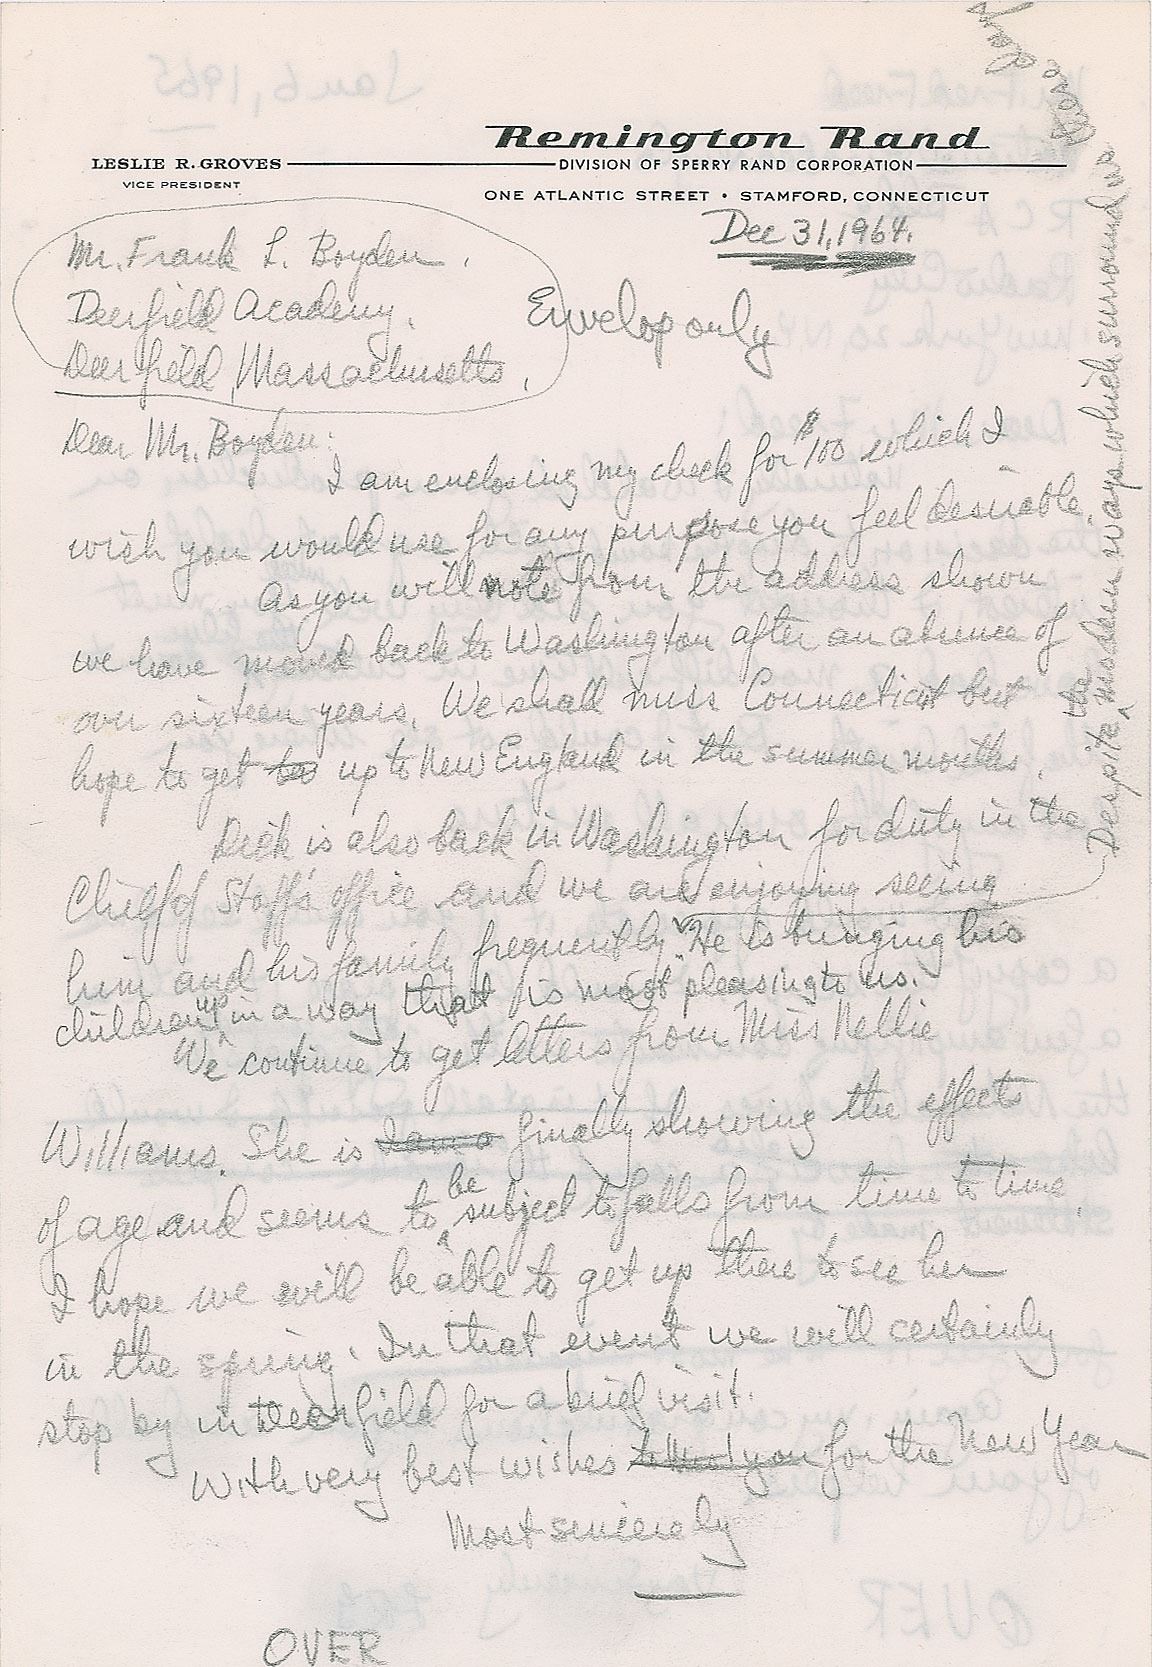 Remington Rand
LESLIE R. GROVES
DIVISION OF SPERRY RAND CORPORATION
VICE PRESIDENT
ONE ATLANTIC STREET • STAMFORD, CONNECTICUT
Dec 31, 1964.
Mr. Frank L. Boyden.
Deerfield Academy.
Deerfield, Massachusetts.
Envelop only
Dear Mr. Boyden:
I am enclosing my check for $100 which I
wish you would use for any purpose you feel desirable.
As you will note from the address shown
we have moved back to Washington after an absence of
over sixteen years. We shall miss Connecticut but
hope to get to up to New England in the summer months.
Dick is also back in Washington for duty in the
Chief of Staff's office and we are enjoying seeing
him and his family frequently. He is bringing his
children up in a way that is most pleasing to us.
Despite the modern ways which surround us
We continue to get letters from Miss Nellie
Williams. She is finally showing the effects
of age and seems to be subject to falls from time to time.
I hope we will be able to get up there to see her
in the spring. In that event we will certainly
stop by in Deerfield for a brief visit.
With very best wishes for the New Year
Most sincerely
OVER